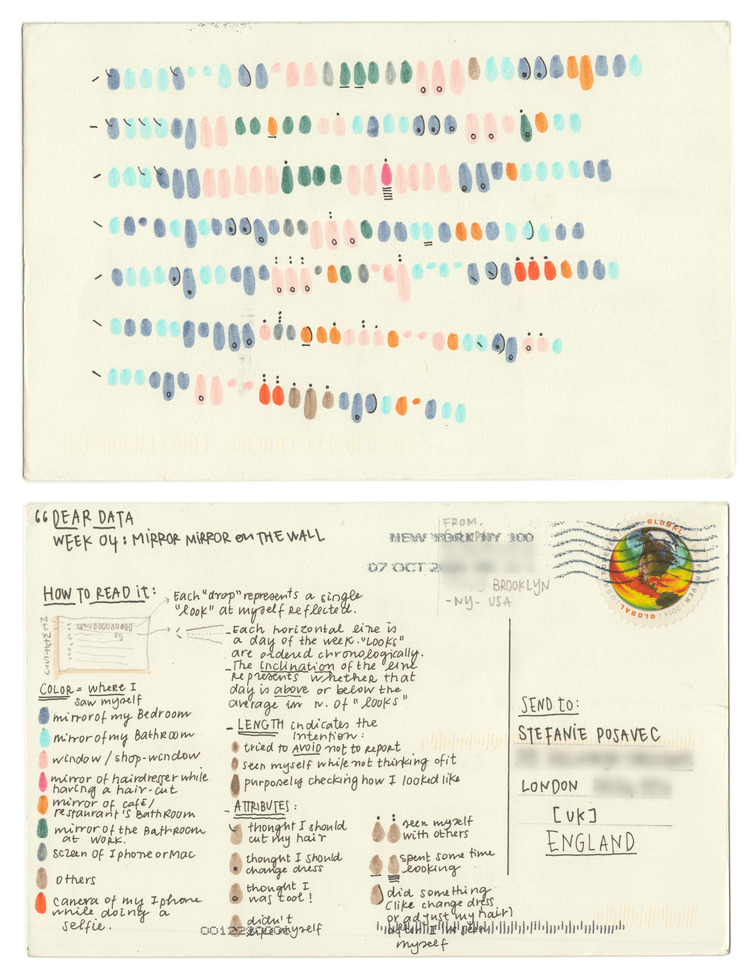 “ DEAR DATA
WEEK 04: MIRROR MIRROR ON THE WALL
FROM.
BROOKLYN
-NY- USA
NEW YORK NY 100
07 OCT
GLOBAL
FOREVER
GLOBAL
HOW TO READ it:
Each "drop" represents a single
"look" at myself reflected.
- Each horizontal line is
a day of the week. "Looks"
are ordered chronologically.
- The inclination of the line
represents whether that
day is above or below the
average in n. of "looks"
COLOR = where I
saw myself
mirror of my Bedroom
mirror of my Bathroom
window / shop-window
mirror of hairdresser while
having a hair-cut
mirror of café/
restaurant's Bathroom
mirror of the Bathroom
at work.
screen of Iphone or Mac
others
camera of my Iphone
while doing a
selfie.
- LENGTH indicates the
intention:
tried to AVOID not to report
seen myself while not thinking of it
purposely checking how I looked like
- ATTRIBUTES:
thought I should
cut my hair
thought I should
change dress
thought I
was cool!
didn't
like myself
seen myself
with others
spent some time
looking
did something
(like change dress
or adjust my hair)
after I've seen
myself
SEND to:
STEFANIE POSAVEC
LONDON
[UK]
ENGLAND